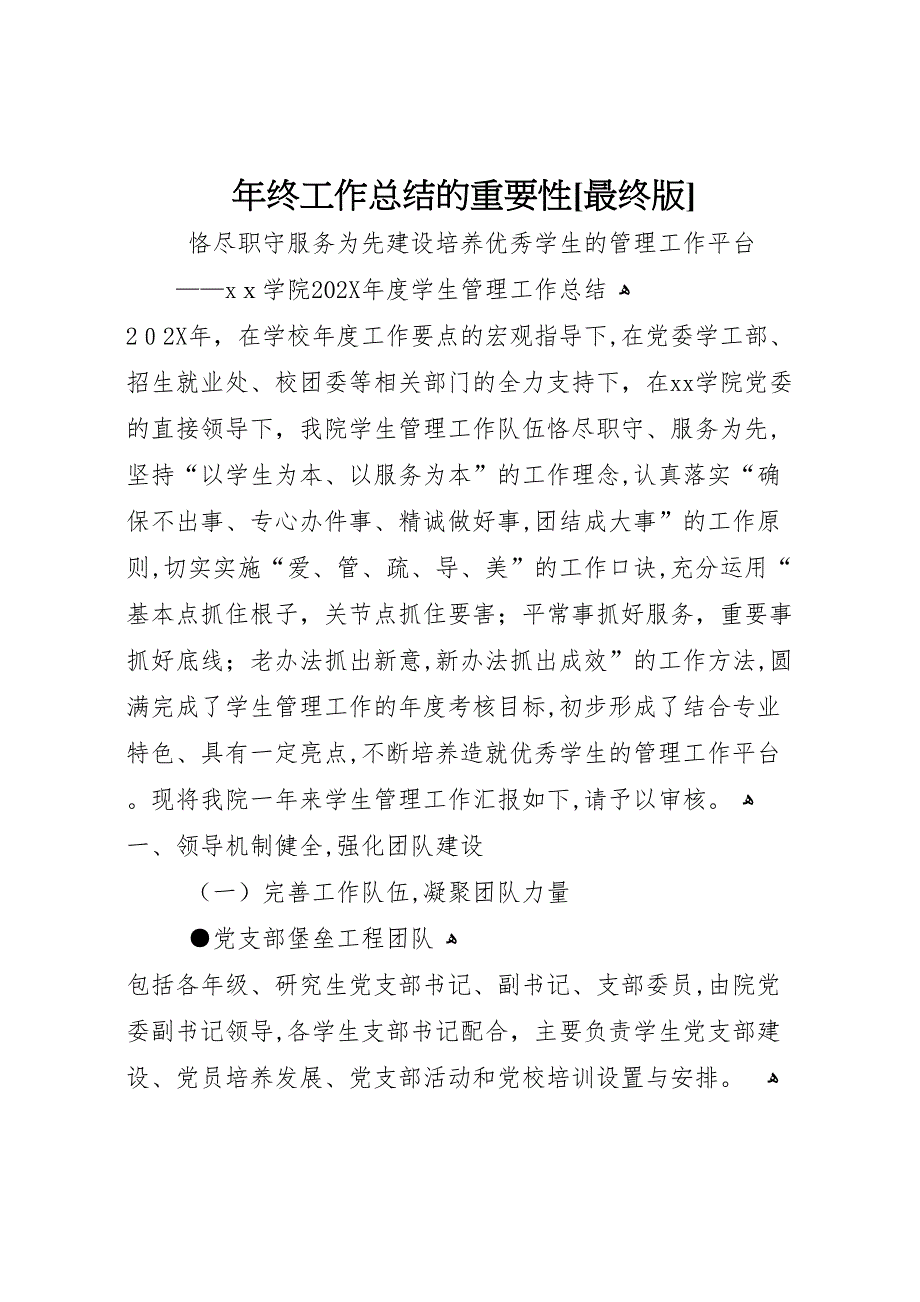 年终工作总结的重要性[最终版]
恪尽职守服务为先建设培养优秀学生的管理工作平台
——xｘ学院202X年度学生管理工作总结 ﻫ
2０2X年，在学校年度工作要点的宏观指导下,在党委学工部、
招生就业处、校团委等相关部门的全力支持下，在xx学院党委
的直接领导下，我院学生管理工作队伍恪尽职守、服务为先,
坚持“以学生为本、以服务为本”的工作理念,认真落实“确
保不出事、专心办件事、精诚做好事,团结成大事”的工作原
则,切实实施“爱、管、疏、导、美”的工作口诀,充分运用“
基本点抓住根子，关节点抓住要害；平常事抓好服务，重要事
抓好底线；老办法抓出新意,新办法抓出成效”的工作方法,圆
满完成了学生管理工作的年度考核目标,初步形成了结合专业
特色、具有一定亮点,不断培养造就优秀学生的管理工作平台
。现将我院一年来学生管理工作汇报如下,请予以审核。 ﻫ
一、领导机制健全,强化团队建设
（一）完善工作队伍,凝聚团队力量
●党支部堡垒工程团队 ﻫ
包括各年级、研究生党支部书记、副书记、支部委员,由院党
委副书记领导,各学生支部书记配合，主要负责学生党支部建
设、党员培养发展、党支部活动和党校培训设置与安排。 ﻫ